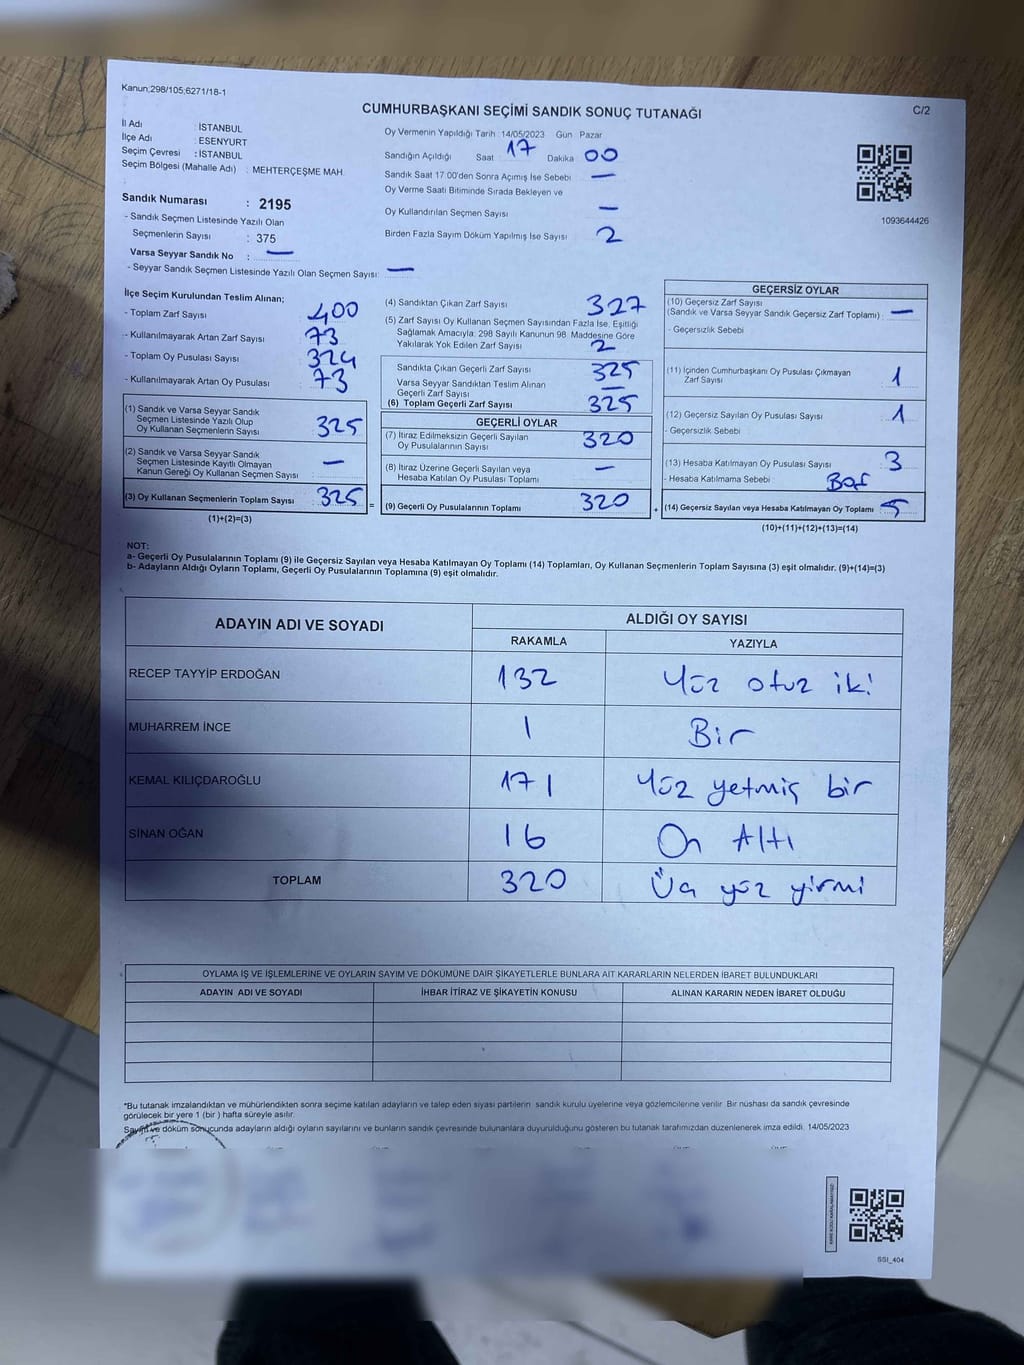 Kanun;298/105;6271/18-1
C/2
CUMHURBAŞKANI SEÇİMİ SANDIK SONUÇ TUTANAĞI
İl Adı : İSTANBUL
İlçe Adı : ESENYURT
Seçim Çevresi : İSTANBUL
Seçim Bölgesi (Mahalle Adı) : MEHTERÇEŞME MAH.
Sandık Numarası : 2195
- Sandık Seçmen Listesinde Yazılı Olan
Seçmenlerin Sayısı : 375
Varsa Seyyar Sandık No : —
- Seyyar Sandık Seçmen Listesinde Yazılı Olan Seçmen Sayısı: —
Oy Vermenin Yapıldığı Tarih : 14/05/2023 Gün Pazar
Sandığın Açıldığı Saat 17 Dakika 00
Sandık Saat 17:00'den Sonra Açımış İse Sebebi —
Oy Verme Saati Bitiminde Sırada Bekleyen ve
Oy Kullandırılan Seçmen Sayısı —
Birden Fazla Sayım Döküm Yapılmış İse Sayısı 2
1093644426
İlçe Seçim Kurulundan Teslim Alınan;
- Toplam Zarf Sayısı 400
- Kullanılmayarak Artan Zarf Sayısı 73
- Toplam Oy Pusulası Sayısı 324
- Kullanılmayarak Artan Oy Pusulası 73
(1) Sandık ve Varsa Seyyar Sandık
Seçmen Listesinde Yazılı Olup
Oy Kullanan Seçmenlerin Sayısı 325
(2) Sandık ve Varsa Seyyar Sandık
Seçmen Listesinde Kayıtlı Olmayan
Kanun Gereği Oy Kullanan Seçmen Sayısı —
(3) Oy Kullanan Seçmenlerin Toplam Sayısı 325 =
(1)+(2)=(3)
(4) Sandıktan Çıkan Zarf Sayısı 327
(5) Zarf Sayısı Oy Kullanan Seçmen Sayısından Fazla İse, Eşitliği
Sağlamak Amacıyla, 298 Sayılı Kanunun 98. Maddesine Göre
Yakılarak Yok Edilen Zarf Sayısı 2
Sandıkta Çıkan Geçerli Zarf Sayısı 325
Varsa Seyyar Sandıktan Teslim Alınan
Geçerli Zarf Sayısı —
(6) Toplam Geçerli Zarf Sayısı 325
GEÇERLİ OYLAR
(7) İtiraz Edilmeksizin Geçerli Sayılan
Oy Pusulalarının Sayısı 320
(8) İtiraz Üzerine Geçerli Sayılan veya
Hesaba Katılan Oy Pusulası Toplamı —
(9) Geçerli Oy Pusulalarının Toplamı 320 +
GEÇERSİZ OYLAR
(10) Geçersiz Zarf Sayısı
(Sandık ve Varsa Seyyar Sandık Geçersiz Zarf Toplamı) : —
- Geçersizlik Sebebi
(11) İçinden Cumhurbaşkanı Oy Pusulası Çıkmayan
Zarf Sayısı 1
(12) Geçersiz Sayılan Oy Pusulası Sayısı 1
- Geçersizlik Sebebi
(13) Hesaba Katılmayan Oy Pusulası Sayısı 3
- Hesaba Katılmama Sebebi :
(14) Geçersiz Sayılan veya Hesaba Katılmayan Oy Toplamı 5
(10)+(11)+(12)+(13)=(14)
NOT:
a- Geçerli Oy Pusulalarının Toplamı (9) ile Geçersiz Sayılan veya Hesaba Katılmayan Oy Toplamı (14) Toplamları, Oy Kullanan Seçmenlerin Toplam Sayısına (3) eşit olmalıdır. (9)+(14)=(3)
b- Adayların Aldığı Oyların Toplamı, Geçerli Oy Pusulalarının Toplamına (9) eşit olmalıdır.
ADAYIN ADI VE SOYADI ALDIĞI OY SAYISI
RAKAMLA YAZIYLA
RECEP TAYYİP ERDOĞAN 132 Yüz otuz iki
MUHARREM İNCE 1 Bir
KEMAL KILIÇDAROĞLU 171 Yüz yetmiş bir
SİNAN OĞAN 16 On Altı
TOPLAM 320 Üç yüz yirmi
OYLAMA İŞ VE İŞLEMLERİNE VE OYLARIN SAYIM VE DÖKÜMÜNE DAİR ŞİKAYETLERLE BUNLARA AİT KARARLARIN NELERDEN İBARET BULUNDUKLARI
ADAYIN ADI VE SOYADI İHBAR İTİRAZ VE ŞİKAYETİN KONUSU ALINAN KARARIN NEDEN İBARET OLDUĞU
*Bu tutanak imzalandıktan ve mühürlendikten sonra seçime katılan adayların ve talep eden siyasi partilerin sandık kurulu üyelerine veya gözlemcilerine verilir. Bir nüshası da sandık çevresinde
görülecek bir yere 1 (bir) hafta süreyle asılır.
Sayım ve döküm sonucunda adayların aldığı oyların sayılarını ve bunların sandık çevresinde bulunanlara duyurulduğunu gösteren bu tutanak tarafımızdan düzenlenerek imza edildi. 14/05/2023
SSI_404